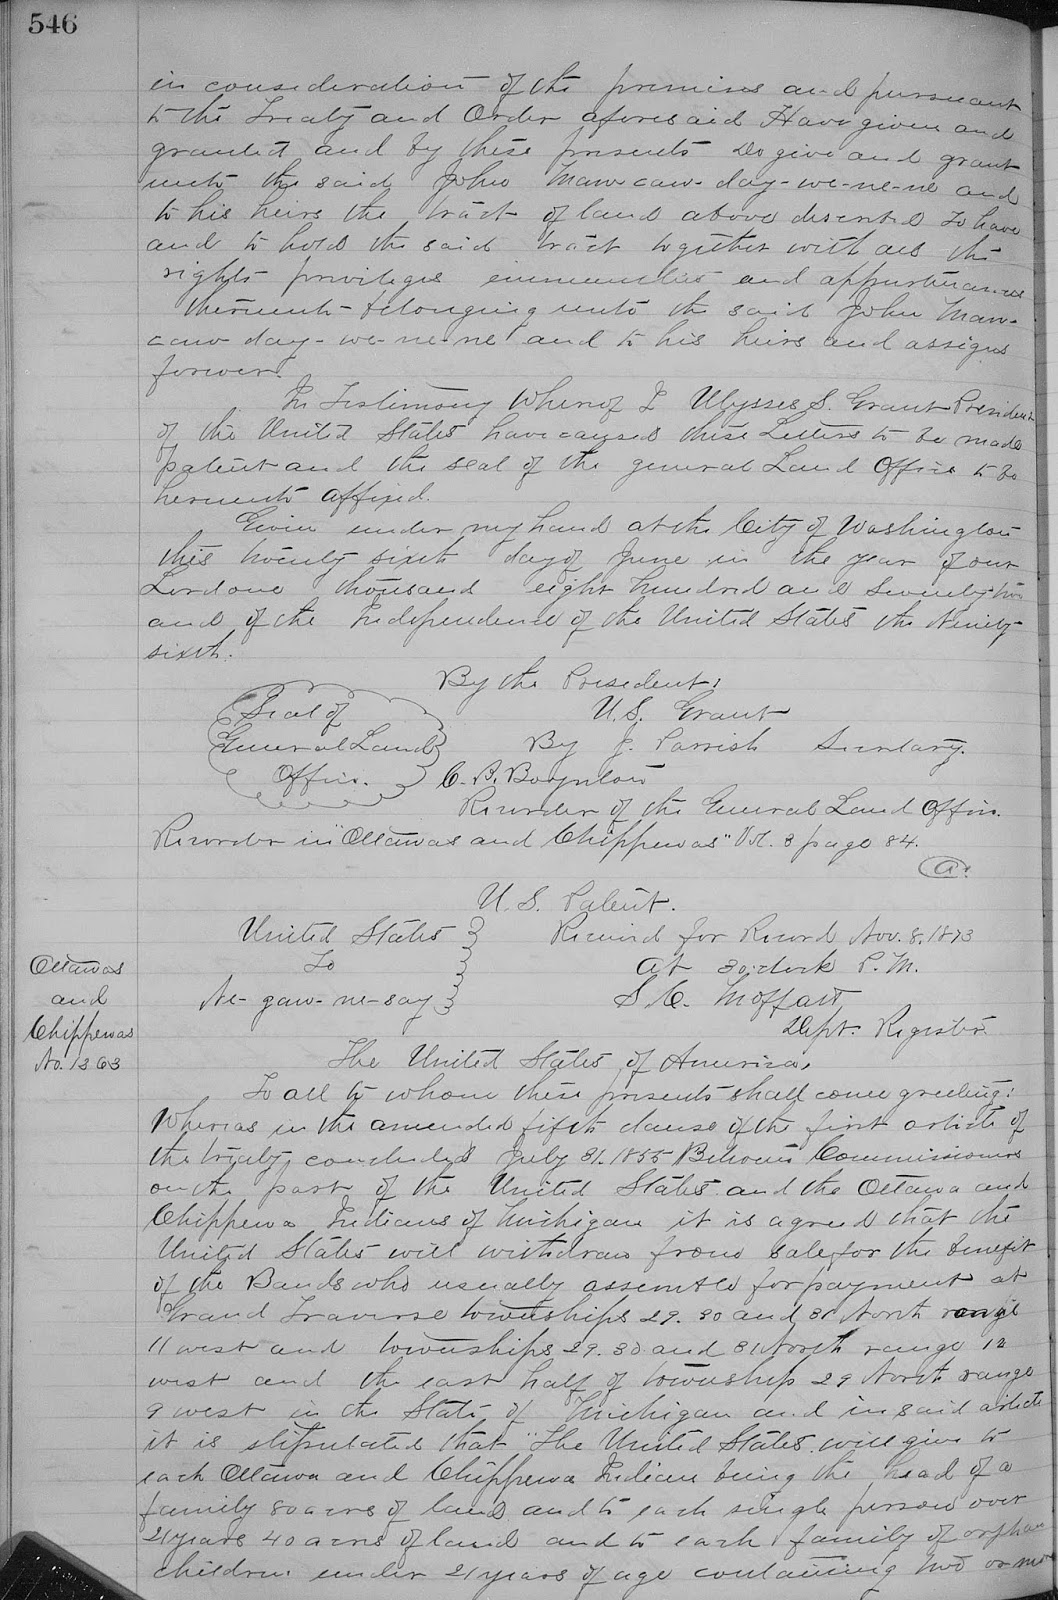 546
in consideration of the premises and pursuant
to the Treaty and Order aforesaid Have given and
granted and by these presents Do give and grant
unto the said John Maw-caw-day-we-ne-ne and
to his heirs the tract of land above described To have
and to hold the said tract together with all the
rights privileges immunities and appurtenances
thereunto belonging unto the said John Maw-
caw-day-we-ne-ne and to his heirs and assigns
forever.
In Testimony Whereof I Ulysses S. Grant President
of the United States have caused these Letters to be made
patent and the seal of the general Land Office to be
hereunto affixed.
Given under my hand at the City of Washington
this twenty sixth day of June in the year of our
Lord one thousand eight hundred and Seventy two
and of the Independence of the United States the Ninety-
sixth.
By the President:
Seal of
General Land
Office.
U.S. Grant
By J. Parrish Secretary.
C. B. Boynton
Recorder of the General Land Office.
Recorder in "Ottawas and Chippewas" Vol. 3 page 84.
a.
U. S. Patent.
United States
To
Ne-gaw-ne-say
Received for Record Nov. 8. 1873
at 3 o'clock P.M.
S. C. Moffatt
Dept. Register.
Ottawas
and
Chippewas
No. 1363
The United States of America,
To all to whom these presents shall come greeting:
Whereas in the amended fifth clause of the first article of
the treaty concluded July 31. 1855 Between Commissioners
on the part of the United States and the Ottawa and
Chippewa Indians of Michigan it is agreed that the
United States will withdraw from sale for the benefit
of the Bands who usually assemble for payment at
Grand Traverse townships 29. 30 and 31 North range
11 west and townships 29. 30 and 31 North range 12
west and the east half of township 29 North range
9 west in the State of Michigan and in said article
it is stipulated that "The United States will give to
each Ottawa and Chippewa Indian being the head of a
family 80 acres of land and to each single person over
21 years 40 acres of land and to each family of orphan
children under 21 years of age containing two or more